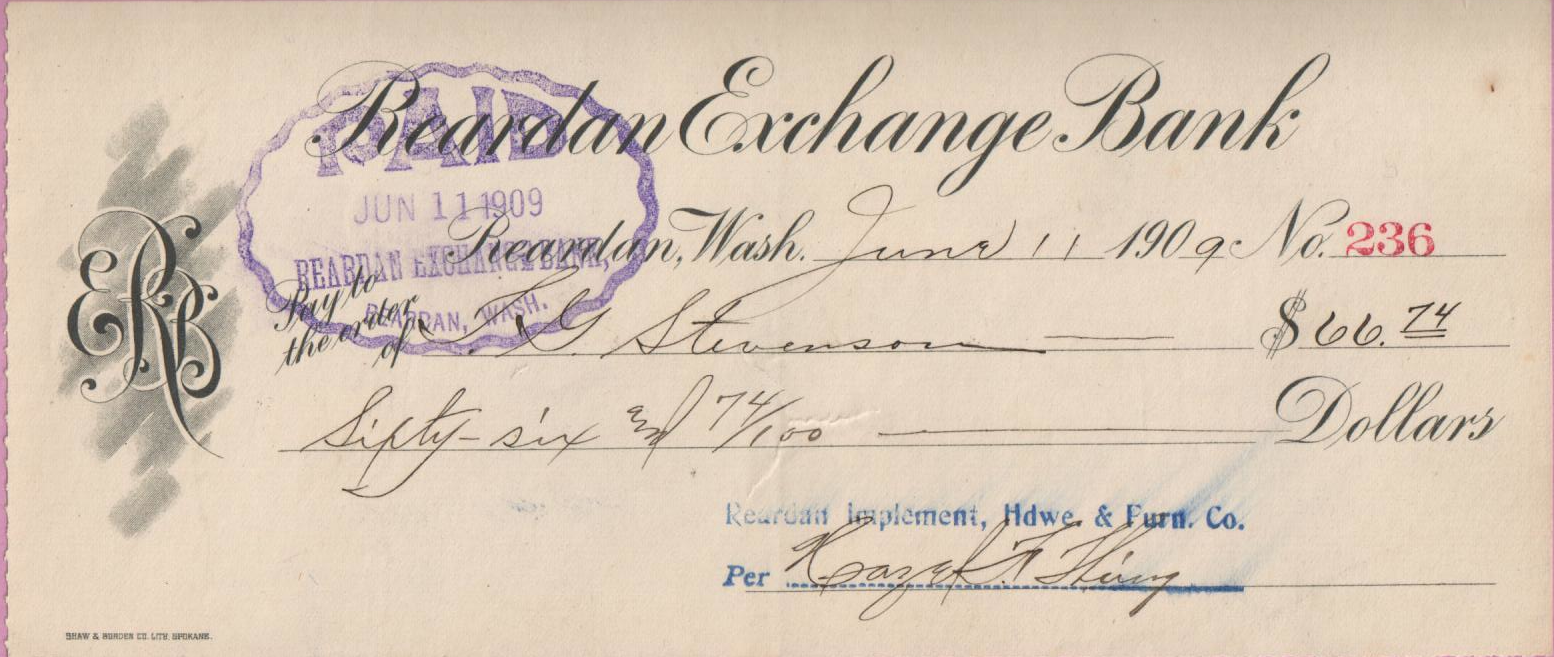 Reardan Exchange Bank
PAID
JUN 11 1909
REARDAN EXCHANGE BANK,
REARDAN, WASH.
Reardan, Wash. June 11 1909 No. 236
Pay to the order of G Stevenson $66.74
Sixty-six and 74/100 Dollars
ERB
Reardan Implement, Hdwe. & Furn. Co.
Per Hazel F.
SHAW & BORDEN CO. LITH. SPOKANE.